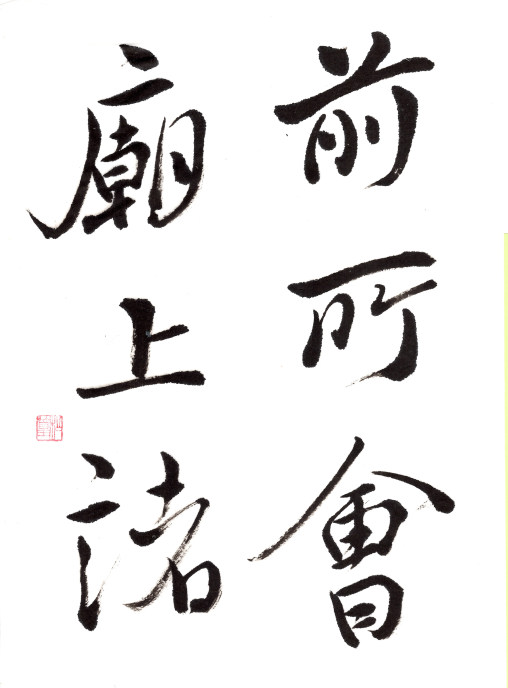 前所會
廟上諸